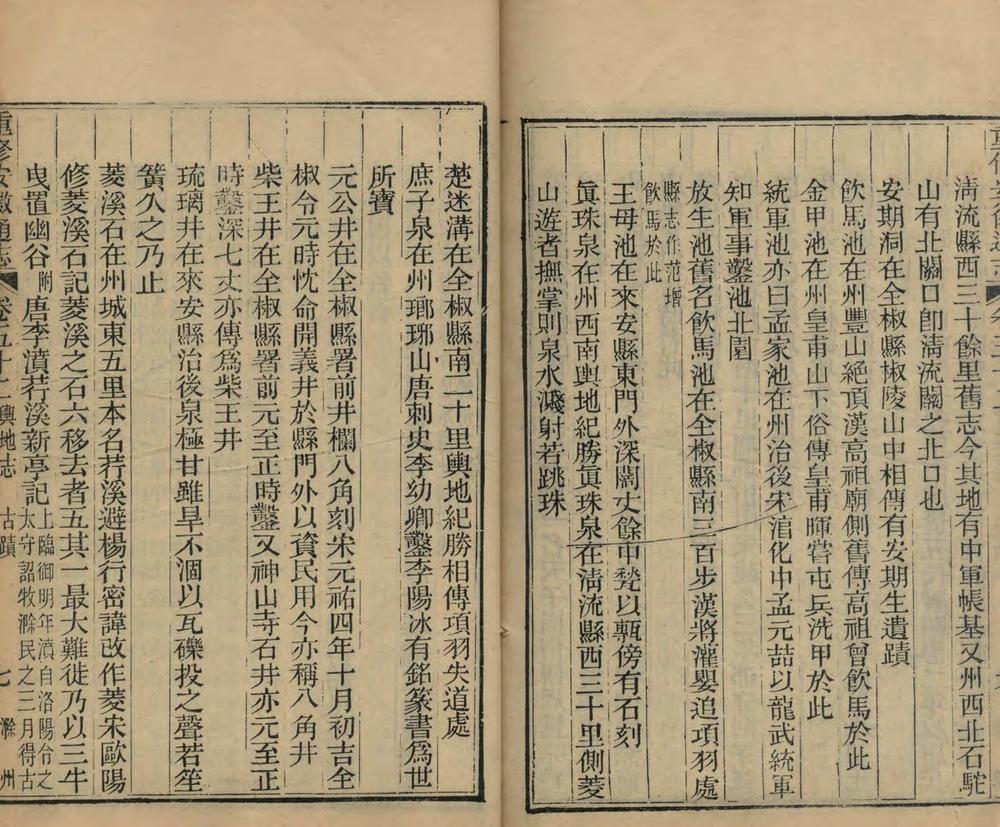 清流縣西三十餘里舊志今其地有中軍帳基又州西北石駝
山有北關口卽清流關之北口也
安期洞在全椒縣椒陵山中相傳有安期生遺蹟
飲馬池在州豐山絕頂漢高祖廟側舊傳高祖曾飲馬於此
金甲池在州皇甫山下俗傳皇甫暉嘗屯兵洗甲於此
統軍池亦曰孟家池在州治後宋淳化中孟元喆以龍武統軍
知軍事鑿池北園
放生池舊名飲馬池在全椒縣南三百步漢將灌嬰追項羽處
縣志作范增
飲馬於此
王母池在來安縣東門外深闊丈餘中甃以甎傍有石刻
眞珠泉在州西南輿地紀勝眞珠泉在清流縣西三十里側菱
山遊者撫掌則泉水濺射若跳珠
楚迷溝在全椒縣南二十里輿地紀勝相傳項羽失道處
庶子泉在州瑯琊山唐刺史李幼卿鑿李陽冰有銘篆書爲世
所寶
元公井在全椒縣署前井欄八角刻宋元祐四年十月初吉全
椒令元時忱命開義井於縣門外以資民用今亦稱八角井
柴王井在全椒縣署前元至正時鑿又神山寺石井亦元至正
時鑿深七丈亦傳爲柴王井
琉璃井在來安縣治後泉極甘雖旱不涸以瓦礫投之聲若笙
簧久之乃止
菱溪石在州城東五里本名荇溪避楊行密諱改作菱宋歐陽
修菱溪石記菱溪之石六移去者五其一最大難徙乃以三牛
曳置幽谷附唐李濆荇溪新亭記上臨御明年濆自洛陽令之
太守詔牧滁民之三月得古
重修安徽通志 卷五十二 輿地志 古蹟 七 滁州